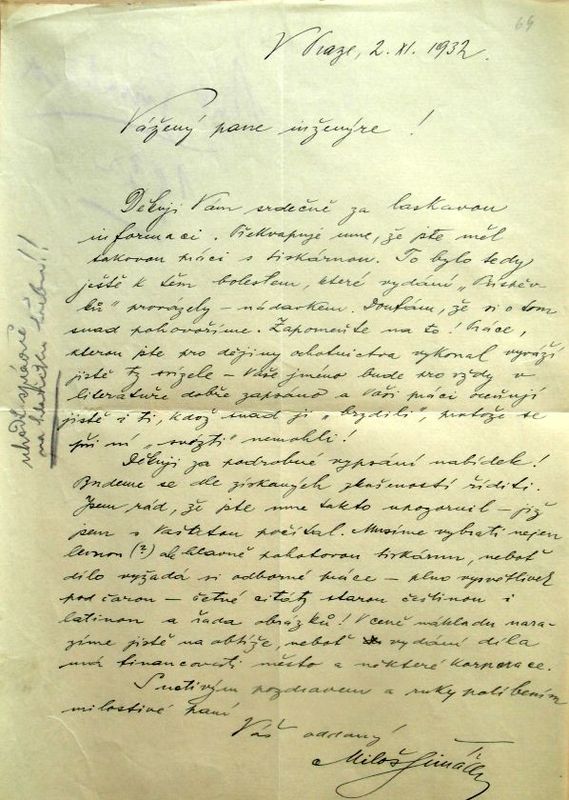 64
V Praze, 2. XI. 1932.
Vážený pane inženýre!
Děkuji Vám srdečně za laskavou
informaci. Překvapuje mne, že jste měl
takovou práci s tiskárnou. To bylo tedy
ještě k těm bolestem, které vydání „Příspěv-
ků" provázely – nádavkem. Doufám, že si o tom
snad pohovoříme. Zapomeňte na to! Práce,
kterou jste pro dějiny ochotnictva vykonal vyváží
jistě ty svízele – Vaše jméno bude pro vždy v
literatuře dobře zapsáno a Vaši práci oceňují
jistě i ti, kdož snad ji „brzdili", protože se
při ní „svézti" nemohli!
Děkuji za podrobné vypsání nabídek!
Budeme se dle získaných zkušeností říditi.
Jsem rád, že jste mne takto upozornil – již
jsem s počítal. Musíme vybrati nejen
levnou (?) ale hlavně pohotovou tiskárnu, neboť
dílo vyžádá si odborné práce – plno vysvětlivek
pod čarou – četné citáty starou češtinou i
latinou a řada obrázků! V ceně nákladu nara-
zíme jistě na obtíže, neboť vydání díla
má financovati město a některé korporace.
S uctivým pozdravem a ruky políbením
milostivé paní
Váš oddaný
Miloš
správně
na hlavičku